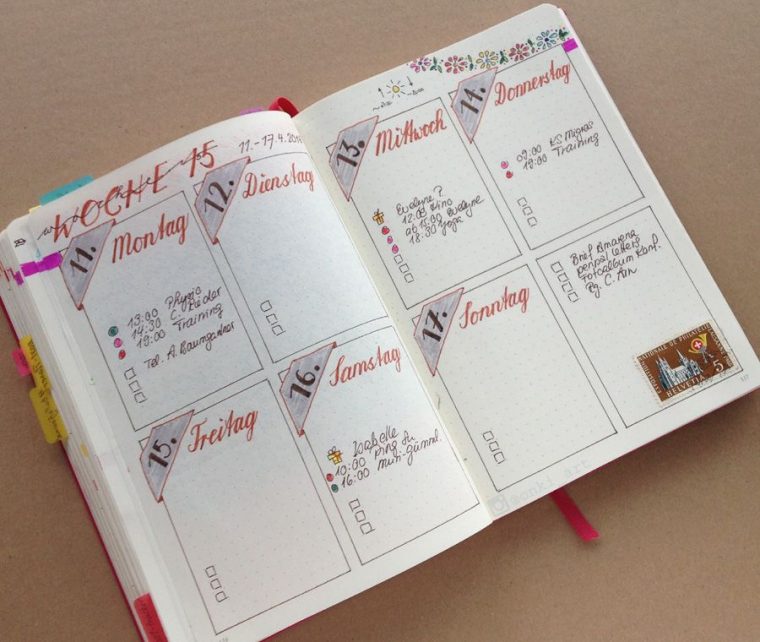 WOCHE 15
11.-17.4.
11. Montag
13:00 Physio
14:30 C.
19:00 Training
Tel. A. Baumgartner
12. Dienstag
13. Mittwoch
Evelyne?
12:00 Kino
ab 15:00 Evelyne
18:30 Yoga
14. Donnerstag
09:00 KS Migros
19:00 Training
15. Freitag
16. Samstag
Isabelle
10:00
16:00
17. Sonntag
Brief Amarena
penpal letters
Fotoalbum
C.
NATIONALE DE PHILATELIE
HELVETIA 5